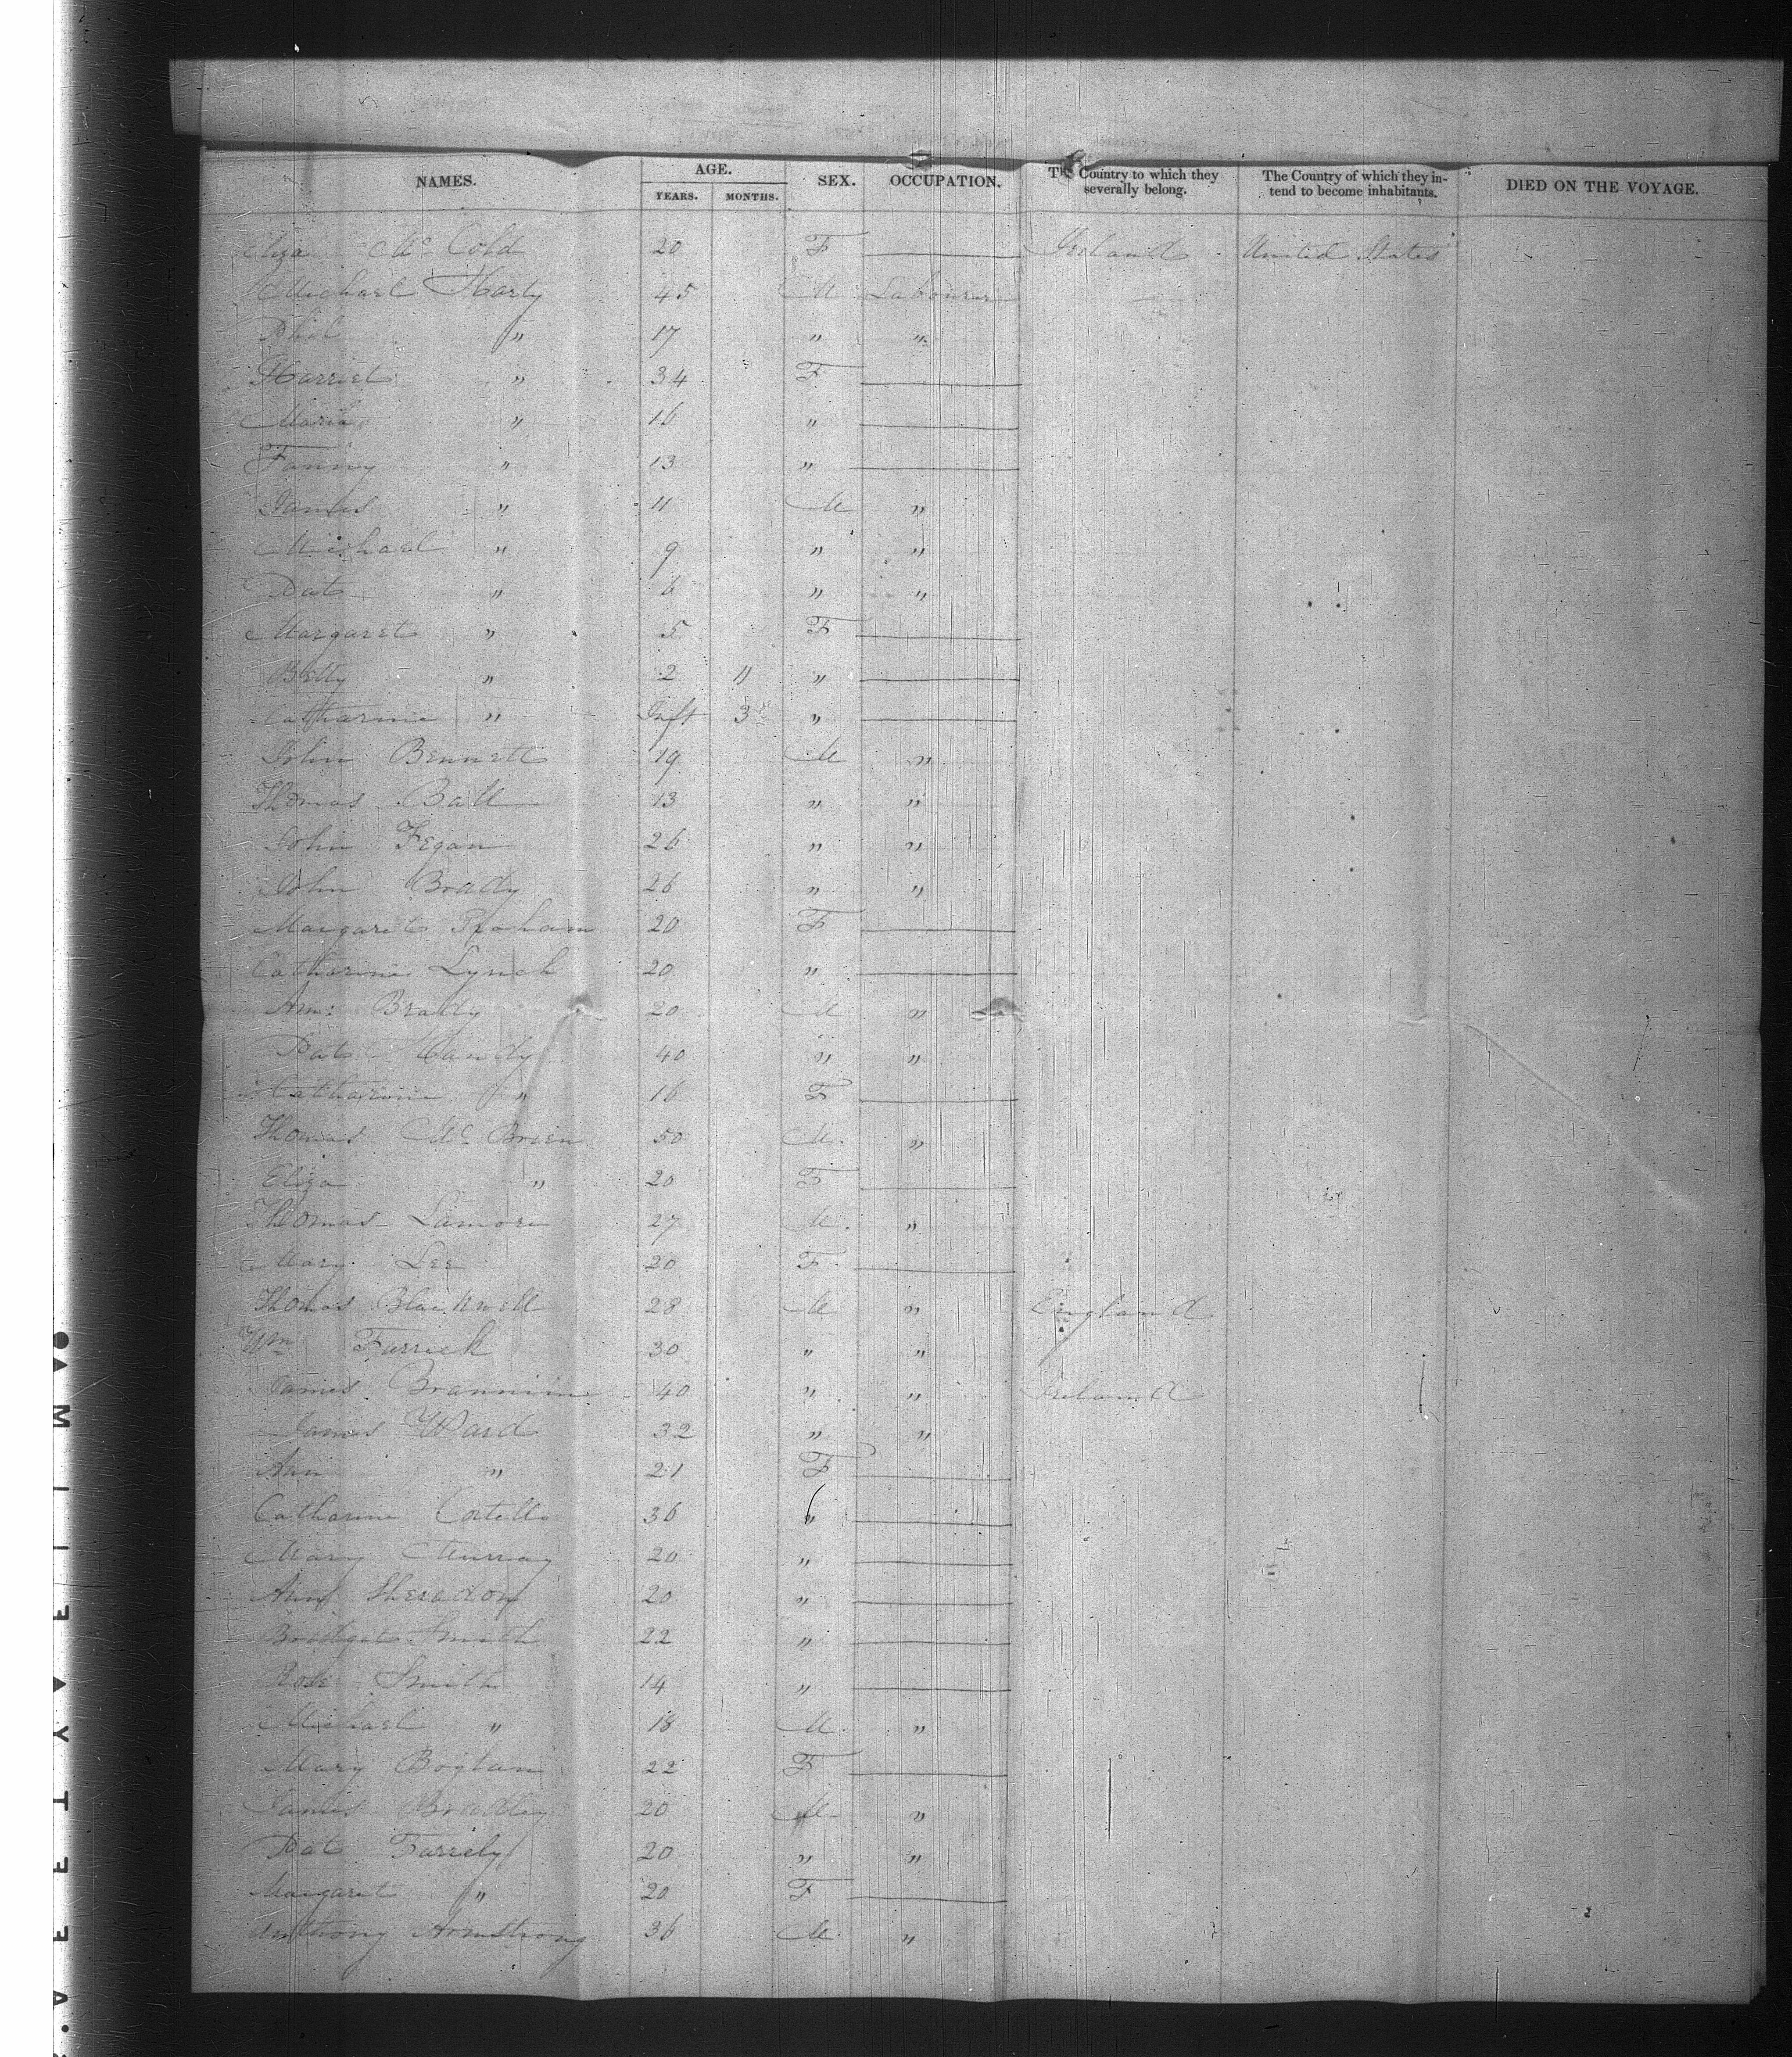 NAMES. AGE. SEX. OCCUPATION. The Country to which they severally belong. The Country of which they intend to become inhabitants. DIED ON THE VOYAGE.
YEARS. MONTHS.
Eliza Mc Cold 20 F Ireland United States
Michael Harty 45 M Labourer
Phil " 17 " "
Harriet " 34 F
Maria " 16 "
Fanny " 13 "
James " 11 M "
Michael " 9 " "
Pat " 6 " "
Margaret " 5 F
Betty " 2 11 "
Catharine " Inft 3 "
John Bennett 19 M "
Thomas Ball 13 " "
John Fegan 26 " "
John Brady 26 " "
Margaret Graham 20 F
Catharine Lynch 20 "
Brady 20 M "
Pat Handy 40 " "
Catharine " 16 F
Thomas Mc Brien 50 M "
Eliza " 20 F
Thomas Lamore 27 M "
Mary Lee 20 F
Thomas Blackwell 28 M " England
Wm Farrick 30 " "
James Brannim 40 " " Ireland
James Ward 32 " "
Ann " 21 F
Catharine Costello 36 "
Mary Murray 20 "
Ann Sheradon 20 "
Bridget Smith 22 "
Rose Smith 14 "
Michael " 18 M "
Mary Boylan 22 F
James Bradley 20 M "
Pat Farrely 20 " "
Margaret " 20 F
Anthony Armstrong 36 M "